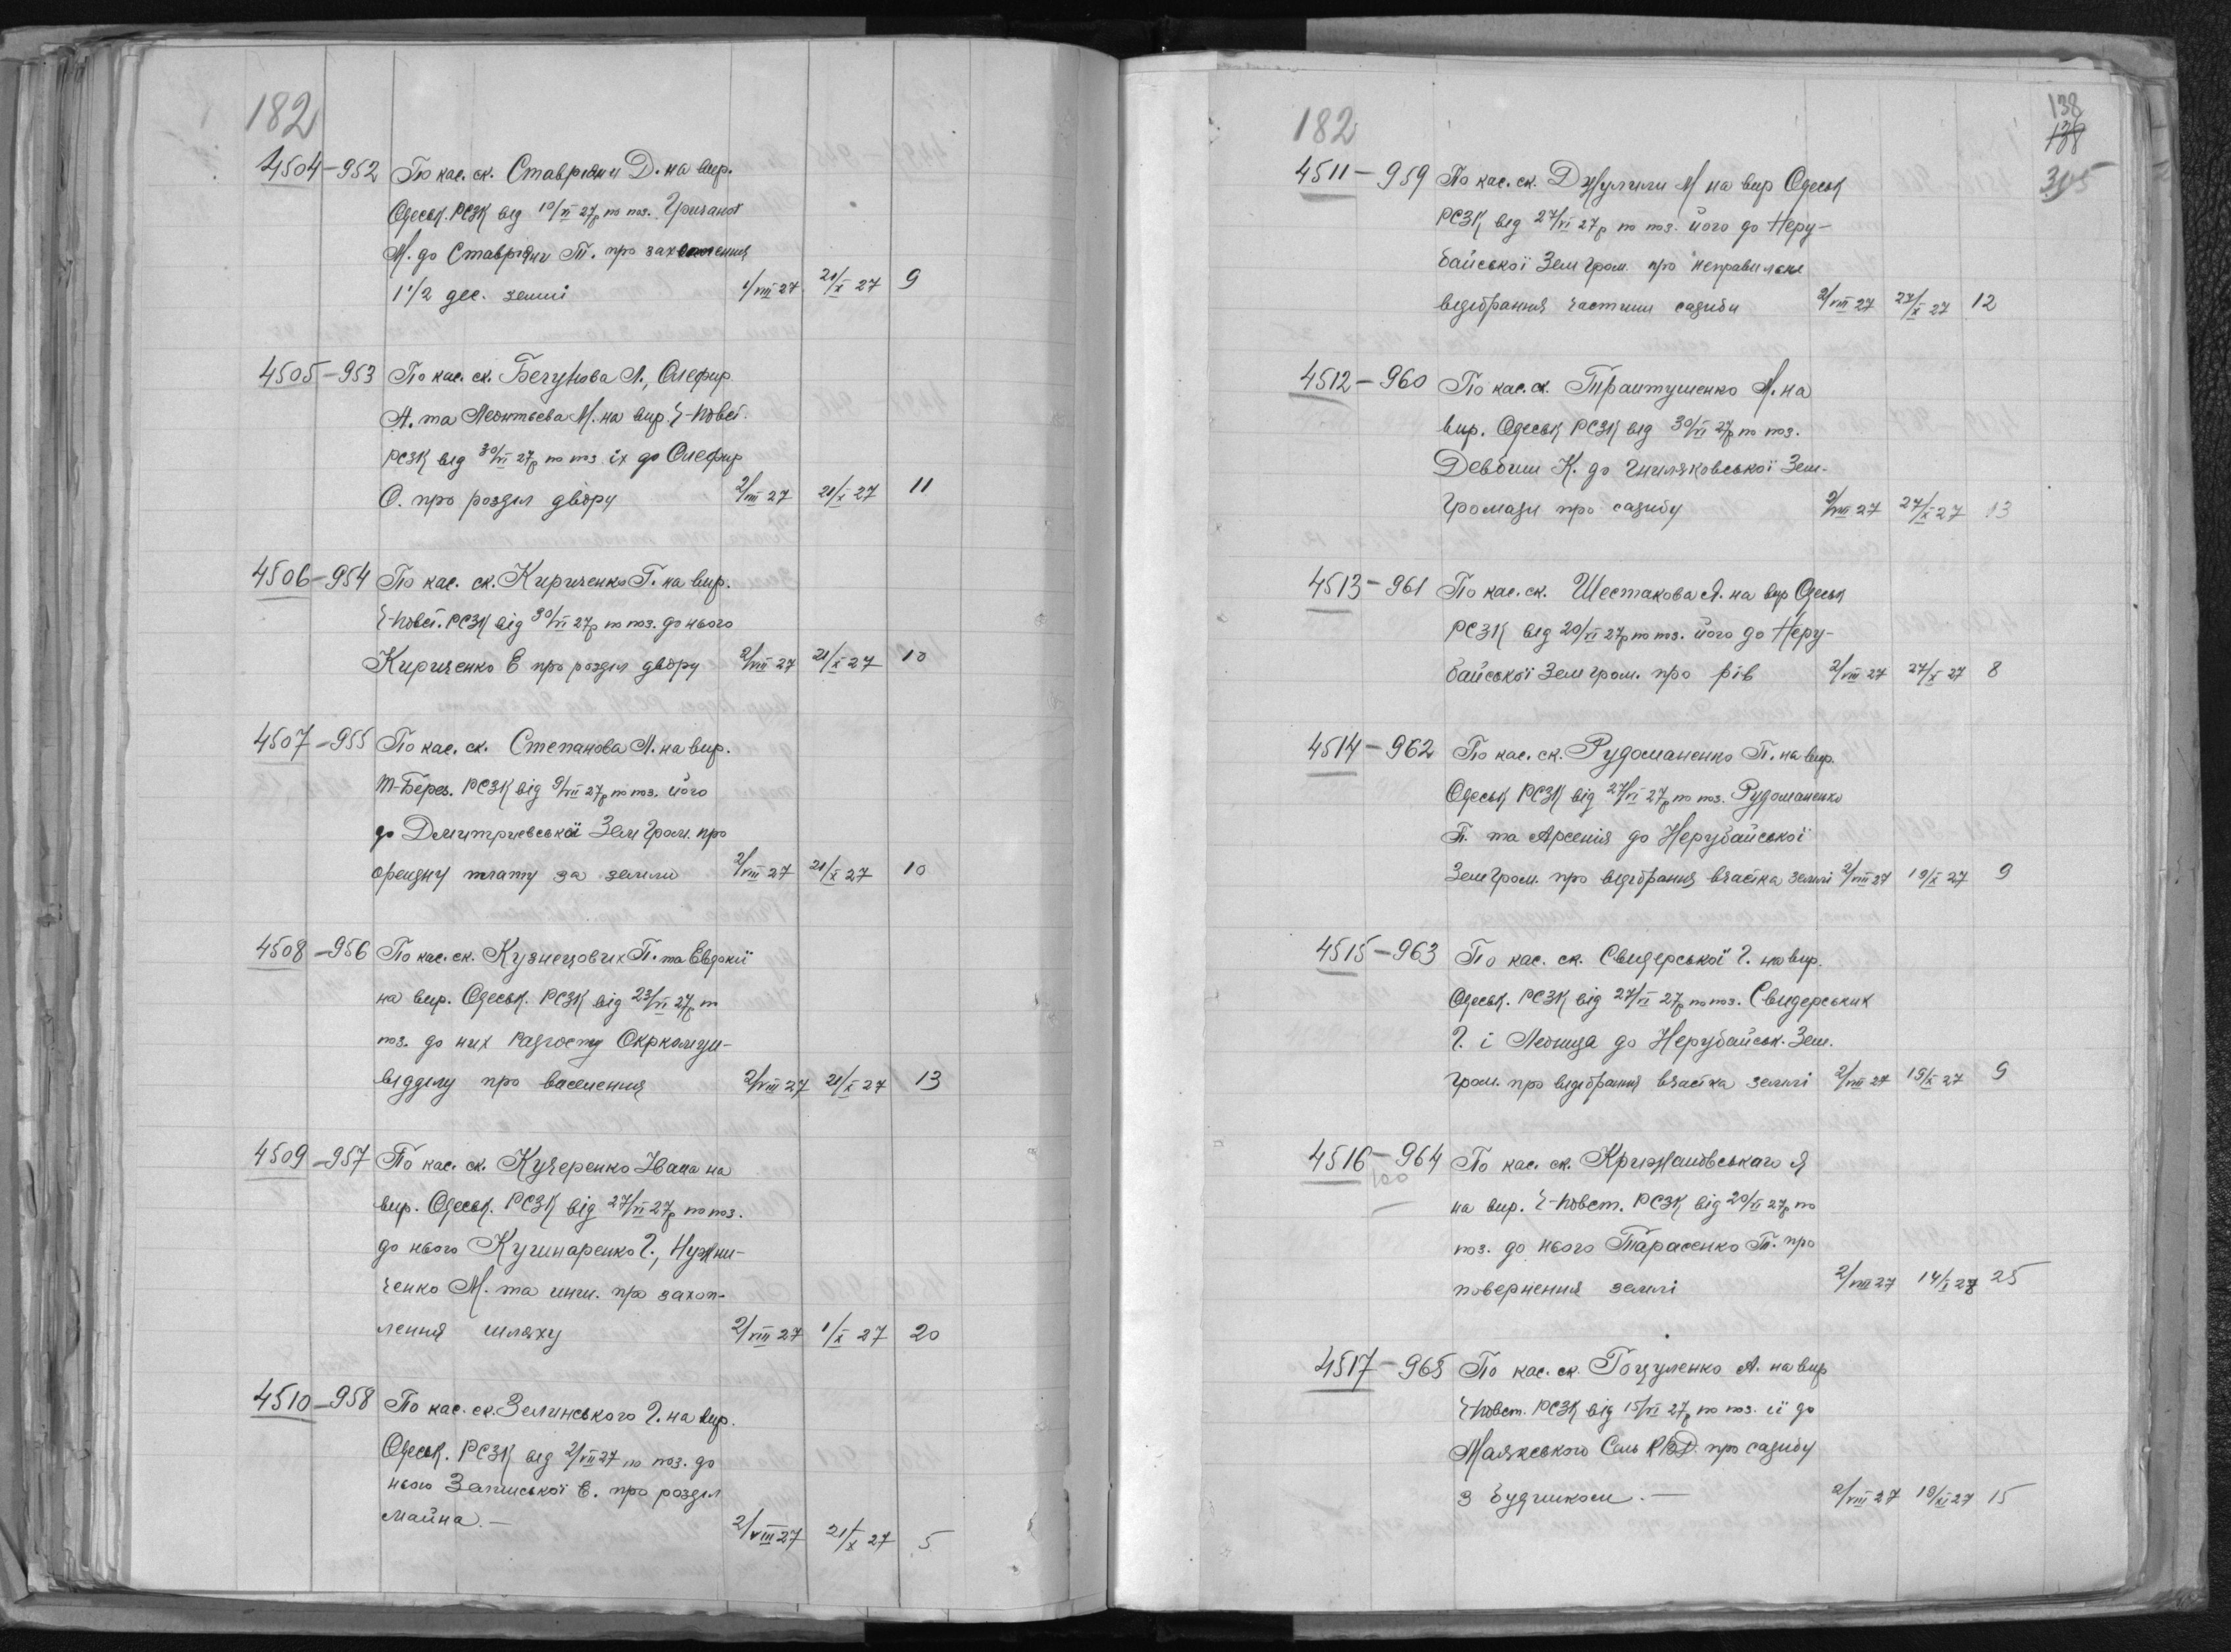 182
4504-952 По кас. ск. Ставріяни Д. на вир.
Одеськ. РСЗК від 10/VI 27р по поз. Гричаног
М. до Ставріяни Т. про захоплення
1 1/2 дес. землі 1/VIII 27 21/X 27 9
4505-953 По кас. ск. Бегунова Л., Олефир
А. та Леонтьева М. на вир. Є-Повст.
РСЗК від 30/VI 27р по поз. їх до Олефир
О. про розділ двору 2/VIII 27 21/X 27 11
4506-954 По кас. ск. Кириченко Г. на вир.
Є-Повст. РСЗК від 30/VI 27р по поз. до нього
Кириченко Е про розділ двору 2/VIII 27 21/X 27 10
4507-955 По кас. ск. Степанова Л. на вир.
Т-Берез. РСЗК від 9/VII 27р по поз. його
до Дмитриевської Зем Гром. про
орендну плату за землю 2/VIII 27 21/X 27 10
4508-956 По кас. ск. Кузнецових П. та Евдокії
на вир. Одеськ. РСЗК від 23/VI 27р по
поз. до них Радгоспу Окркомун-
відділу про виселення 2/VIII 27 21/X 27 13
4509-957 По кас. ск. Кучеренко Івана на
вир. Одеськ. РСЗК від 27/VI 27р по поз.
до нього Кушнаренко Г., Нужни-
ченко М. та инш. про захоп-
лення шляху 2/VIII 27 1/X 27 20
4510-958 По кас. ск. Зелинського Г. на вир.
Одеськ. РСЗК від 2/VII 27 по поз. до
нього Залиської Е. про розділ
майна.- 2/VIII 27 21/X 27 5
182
138
138
305
4511-959 По кас. ск. Джулили М на вир Одеськ
РСЗК від 27/VI 27р по поз. його до Неру-
байської Зем Гром. про неправильне
відібрання частини садиби 2/VIII 27 27/X 27 12
4512-960 По кас. ск. Трантушенко М. на
вир. Одеськ РСЗК від 30/VI 27р по поз.
Девдиш К. до Гниляковської Зем-
Громади про садибу 2/VIII 27 27/X 27 13
4513-961 По кас. ск. Шестакова Я. на вир Одеськ
РСЗК від 20/VI 27р по поз. його до Неру-
байської Зем гром. про рів 2/VIII 27 27/X 27 8
4514-962 По кас. ск. Рудоманенко П. на вир.
Одеськ РСЗК від 27/VI 27р по поз. Рудоманенко
П. та Арсенія до Нерубайської
Зем Гром. про відібрання вчастка землі 2/VIII 27 19/X 27 9
4515-963 По кас. ск. Свидерської Г. на вир.
Одеськ. РСЗК від 27/VI 27р по поз. Свидерських
Г. і Леонида до Нерубайськ. Зем.
гром. про відібрання вчастка землі 2/VIII 27 19/X 27 9
4516-964 По кас. ск. Крижановського Я
100
на вир. Є-Повст. РСЗК від 20/VI 27р по
поз. до нього Тарасенко Т. про
повернення землі 2/VIII 27 14/I 28 25
4517-965 По кас. ск. Гоцуленко А. на вир
Є-Повст. РСЗК від 15/VI 27р по поз. її до
Маякського Сель КВД. про садибу
з будинком.- 2/VIII 27 19/XI 27 15